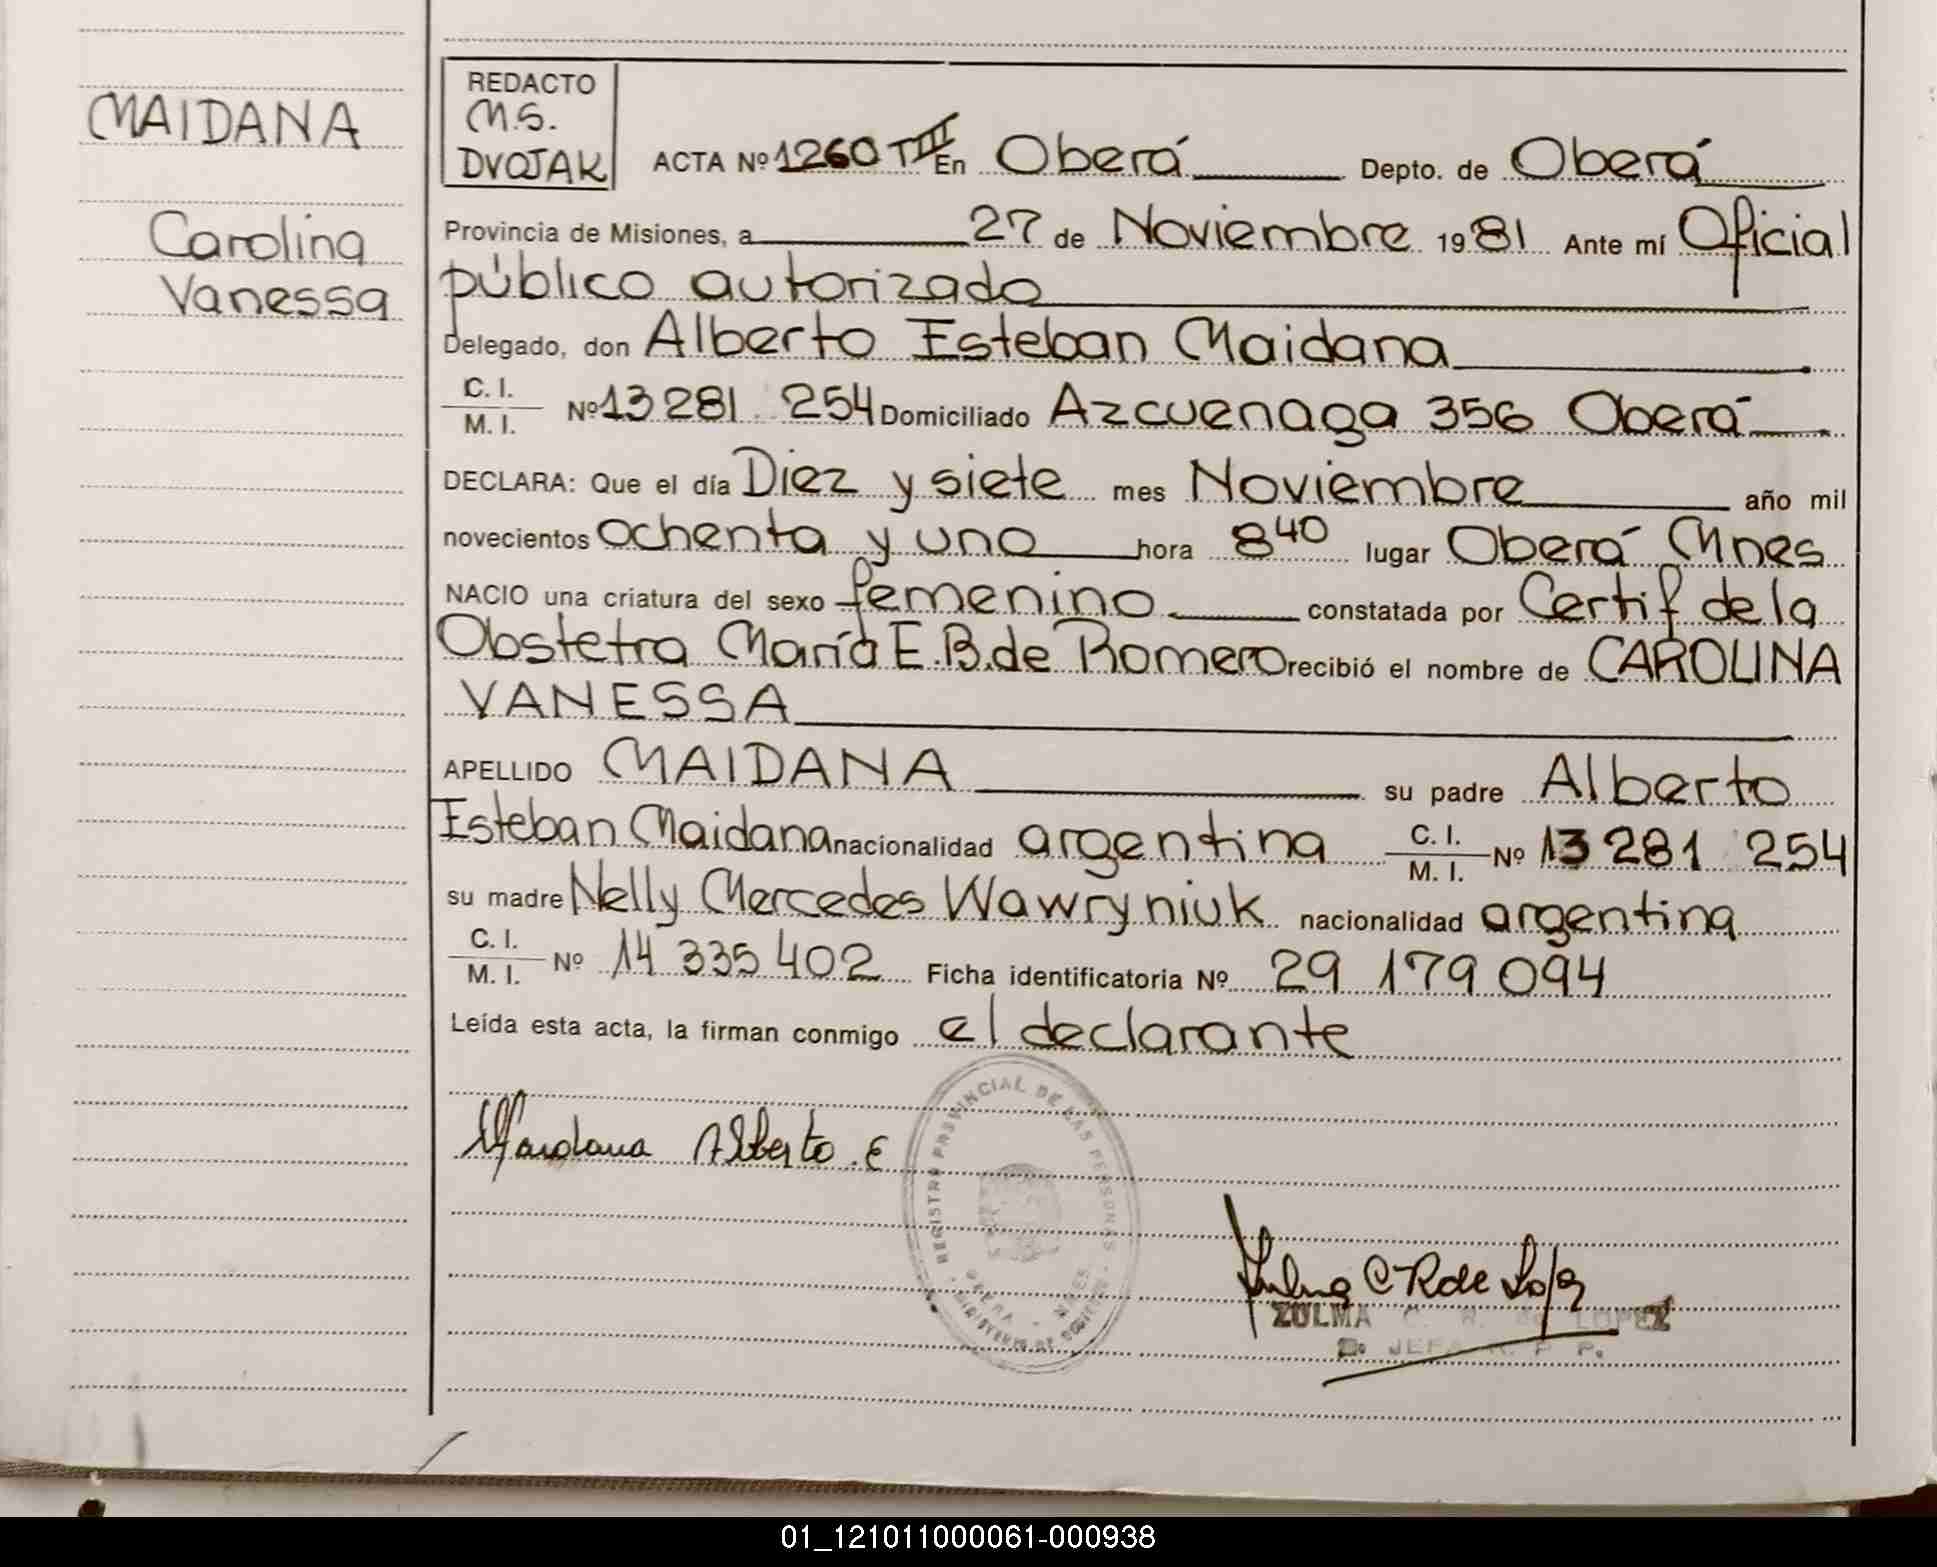 MAIDANA
Carolina
Vanessa
REDACTO
M.S.
DVOJAK
ACTA Nº 1260 TIII En Oberá Depto. de Oberá
Provincia de Misiones, a 27 de Noviembre 1981 Ante mí Oficial
público autorizado
Delegado, don Alberto Esteban Maidana
C. I.
M. I. Nº 13 281 254 Domiciliado Azcuenaga 356 Oberá
DECLARA: Que el día Diez y siete mes Noviembre año mil
novecientos ochenta y uno hora 8 40 lugar Oberá Mnes
NACIO una criatura del sexo femenino constatada por Certif de la
Obstetra María E.B. de Romero recibió el nombre de CAROLINA
VANESSA
APELLIDO MAIDANA su padre Alberto
Esteban Maidana nacionalidad argentina C. I. M. I. Nº 13 281 254
su madre Nelly Mercedes Wawryniuk nacionalidad argentina
C. I.
M. I. Nº 14 335 402 Ficha identificatoria Nº 29 179 094
Leída esta acta, la firman conmigo el declarante
Maidana Alberto E
REGISTRO PROVINCIAL DE LAS PERSONAS
OBERA - MNES
MINISTERIO DE GOBIERNO
Zulma C R de Lopez
ZULMA C. R. de LOPEZ
JEFA R. P. P.
01_121011000061-000938